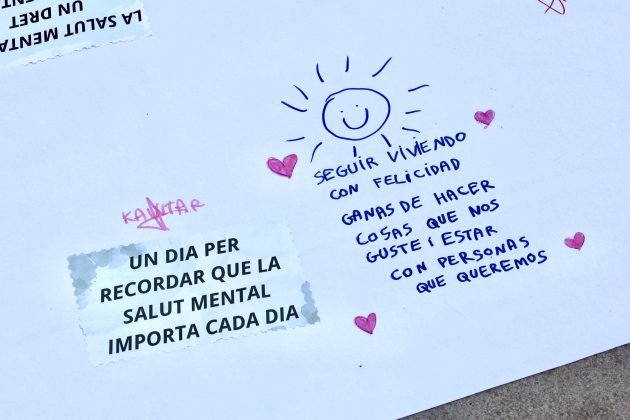 LA SALUT MENTA
UN DRET
SEGUIR VIVIENDO
CON FELICIDAD
GANAS DE HACER
COSAS QUE NOS
GUSTE I ESTAR
CON PERSONAS
QUE QUEREMOS
UN DIA PER
RECORDAR QUE LA
SALUT MENTAL
IMPORTA CADA DIA